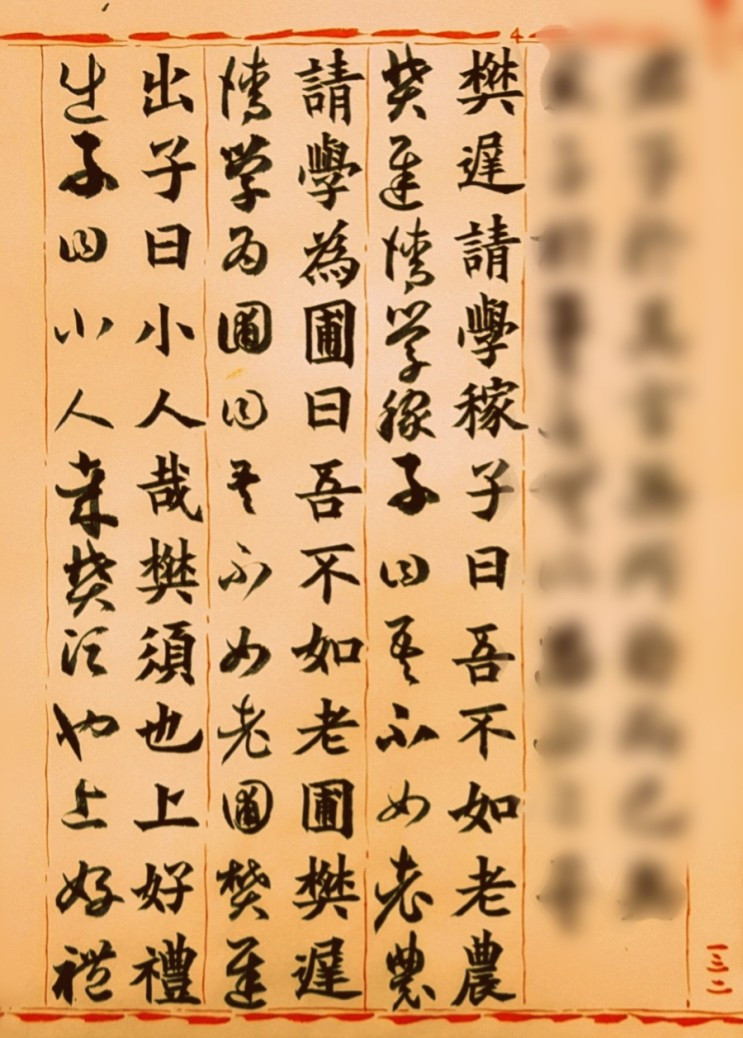 樊遲請學稼子曰吾不如老農
樊遲請學稼子曰吾不如老農
請學為圃曰吾不如老圃樊遲
請學為圃曰吾不如老圃樊遲
出子曰小人哉樊須也上好禮
出子曰小人哉樊須也上好禮
一三二